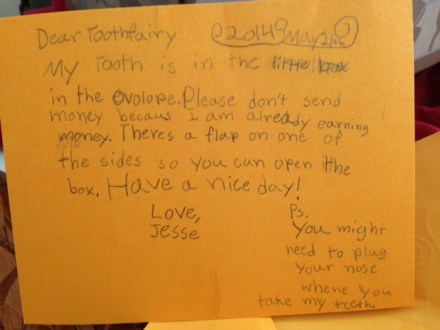 Dear Toothfairy
2014 May 2
My Tooth is in the little box
in the ovolope. Please don't send
money becaus I am already earning
money. Theres a flap on one of
the sides so you can open the
box. Have a nice day!
Love,
Jesse
Ps.
You might
need to plug
your nose
whene you
take my teeth.